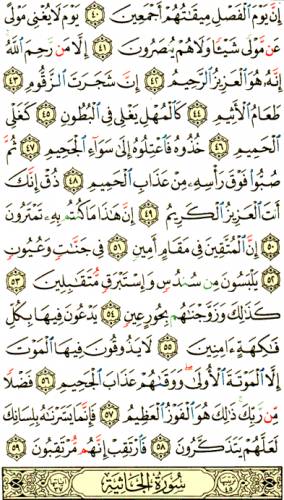 إِنَّ يَوْمَ ٱلْفَصْلِ مِيقَٰتُهُمْ أَجْمَعِينَ ٤٠ يَوْمَ لَا يُغْنِى مَوْلًى
عَن مَّوْلًى شَيْـًٔا وَلَا هُمْ يُنصَرُونَ ٤١ إِلَّا مَن رَّحِمَ ٱللَّهُ
إِنَّهُۥ هُوَ ٱلْعَزِيزُ ٱلرَّحِيمُ ٤٢ إِنَّ شَجَرَتَ ٱلزَّقُّومِ ٤٣
طَعَامُ ٱلْأَثِيمِ ٤٤ كَٱلْمُهْلِ يَغْلِى فِى ٱلْبُطُونِ ٤٥ كَغَلْىِ
ٱلْحَمِيمِ ٤٦ خُذُوهُ فَٱعْتِلُوهُ إِلَىٰ سَوَآءِ ٱلْجَحِيمِ ٤٧ ثُمَّ
صُبُّوا۟ فَوْقَ رَأْسِهِۦ مِنْ عَذَابِ ٱلْحَمِيمِ ٤٨ ذُقْ إِنَّكَ
أَنتَ ٱلْعَزِيزُ ٱلْكَرِيمُ ٤٩ إِنَّ هَٰذَا مَا كُنتُم بِهِۦ تَمْتَرُونَ
٥٠ إِنَّ ٱلْمُتَّقِينَ فِى مَقَامٍ أَمِينٍ ٥١ فِى جَنَّٰتٍ وَعُيُونٍ
٥٢ يَلْبَسُونَ مِن سُندُسٍ وَإِسْتَبْرَقٍ مُّتَقَٰبِلِينَ ٥٣
كَذَٰلِكَ وَزَوَّجْنَٰهُم بِحُورٍ عِينٍ ٥٤ يَدْعُونَ فِيهَا بِكُلِّ
فَٰكِهَةٍ ءَامِنِينَ ٥٥ لَا يَذُوقُونَ فِيهَا ٱلْمَوْتَ
إِلَّا ٱلْمَوْتَةَ ٱلْأُولَىٰ ۖ وَوَقَىٰهُمْ عَذَابَ ٱلْجَحِيمِ ٥٦ فَضْلًا
مِّن رَّبِّكَ ذَٰلِكَ هُوَ ٱلْفَوْزُ ٱلْعَظِيمُ ٥٧ فَإِنَّمَا يَسَّرْنَٰهُ بِلِسَانِكَ
لَعَلَّهُمْ يَتَذَكَّرُونَ ٥٨ فَٱرْتَقِبْ إِنَّهُم مُّرْتَقِبُونَ ٥٩
سُورَةُ الجَاثِيَةِ